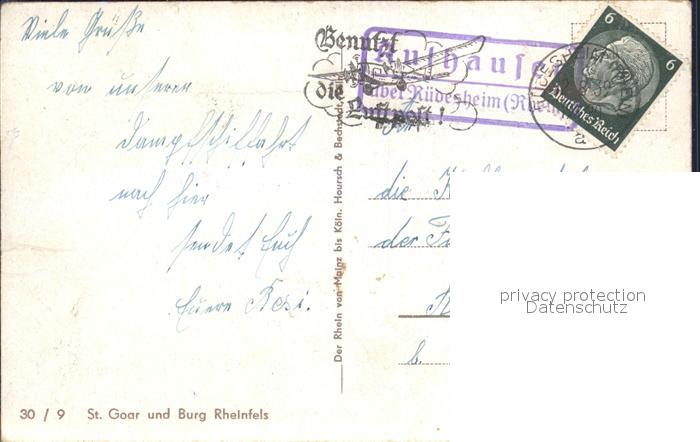 Viele Grüße
von unserer
Dampfschiffahrt
nach hier
sendet Euch
Euere Resi.
30 / 9 St. Goar und Burg Rheinfels
Der Rhein von Mainz bis Köln. Hoursch & Bechstedt,
Benutzt
die
Luftpost!
Aulhausen
über Rüdesheim (Rhein
6
6
Deutsches Reich
die
der
b.
privacy protection
Datenschutz